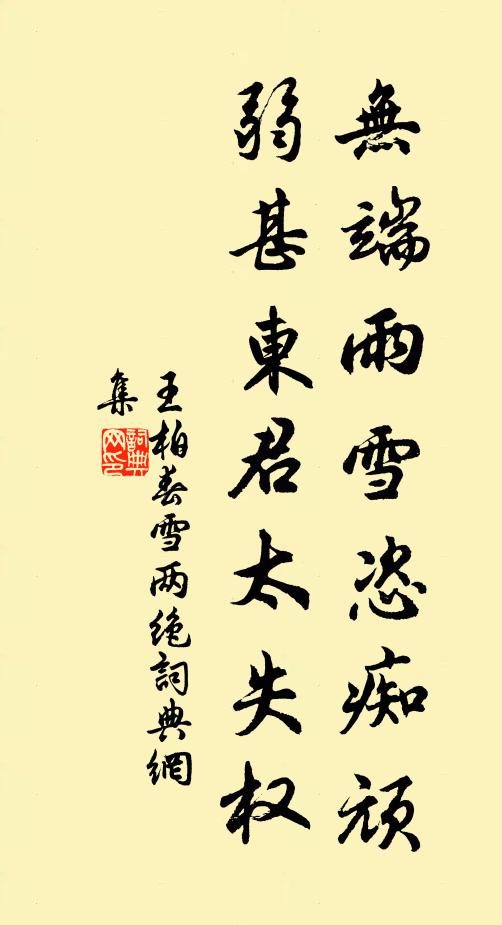 無端雨雪恣痴頑
弱甚東君太失权
王柏春雪两绝詞典網
集
詞典网印